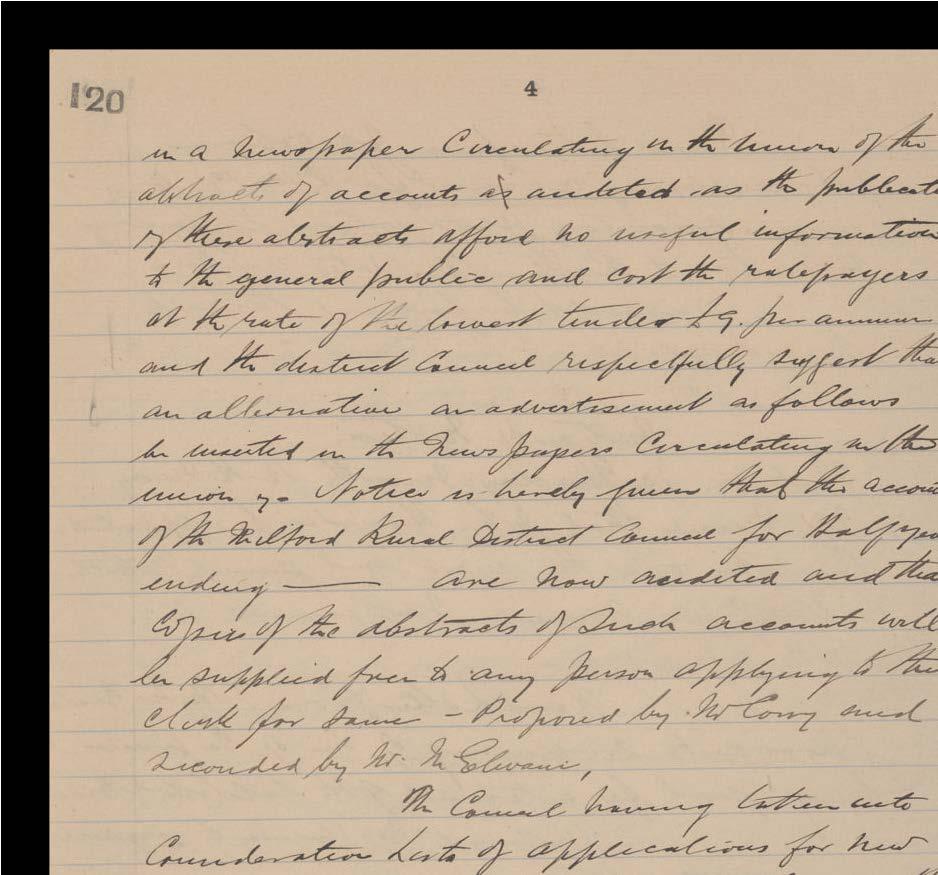 120
4
in a Newspaper Circulating in the Union of the
abstracts of accounts as audited as the publicat
of these abstracts afford no useful information
to the general public and cost the ratepayers
at the rate of the lowest tender £9. per annum
and the district Council respectfully suggest tha
an alternative an advertisement as follows
be inserted in the Newspapers Circulating in the
union Notice is hereby given that the accou
of the Milford Rural District Council for Half yea
ending —— are now audited and tha
Copies of the abstracts of Such accounts will
be supplied free to any person applying to the
Clerk for same - Proposed by Mr Corry and
seconded by Mr. McElwani,
The Council having taken into
Consideration Lists of applications for new